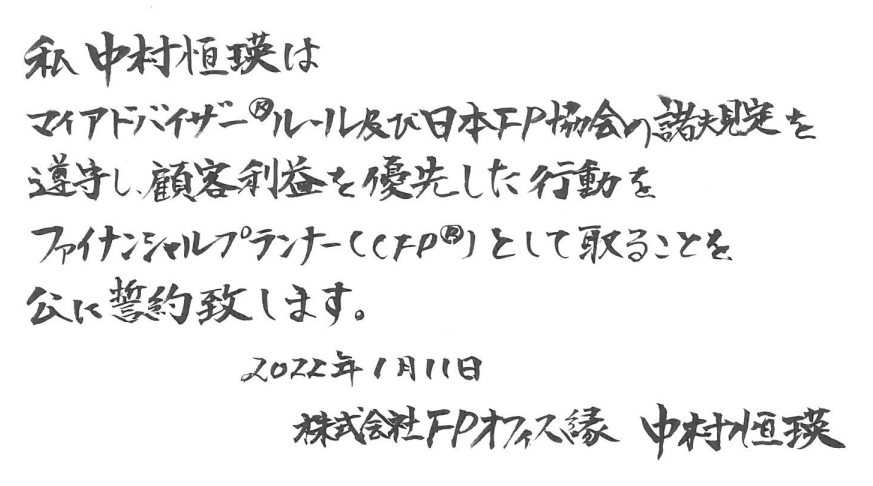 私 中村恒瑛は
マイアドバイザー®ルール及び日本FP協会の諸規定を
遵守し、顧客利益を優先した行動を
ファイナンシャルプランナー(CFP®)として取ることを
公に誓約致します。
2022年1月11日
株式会社FPオフィス縁 中村恒瑛